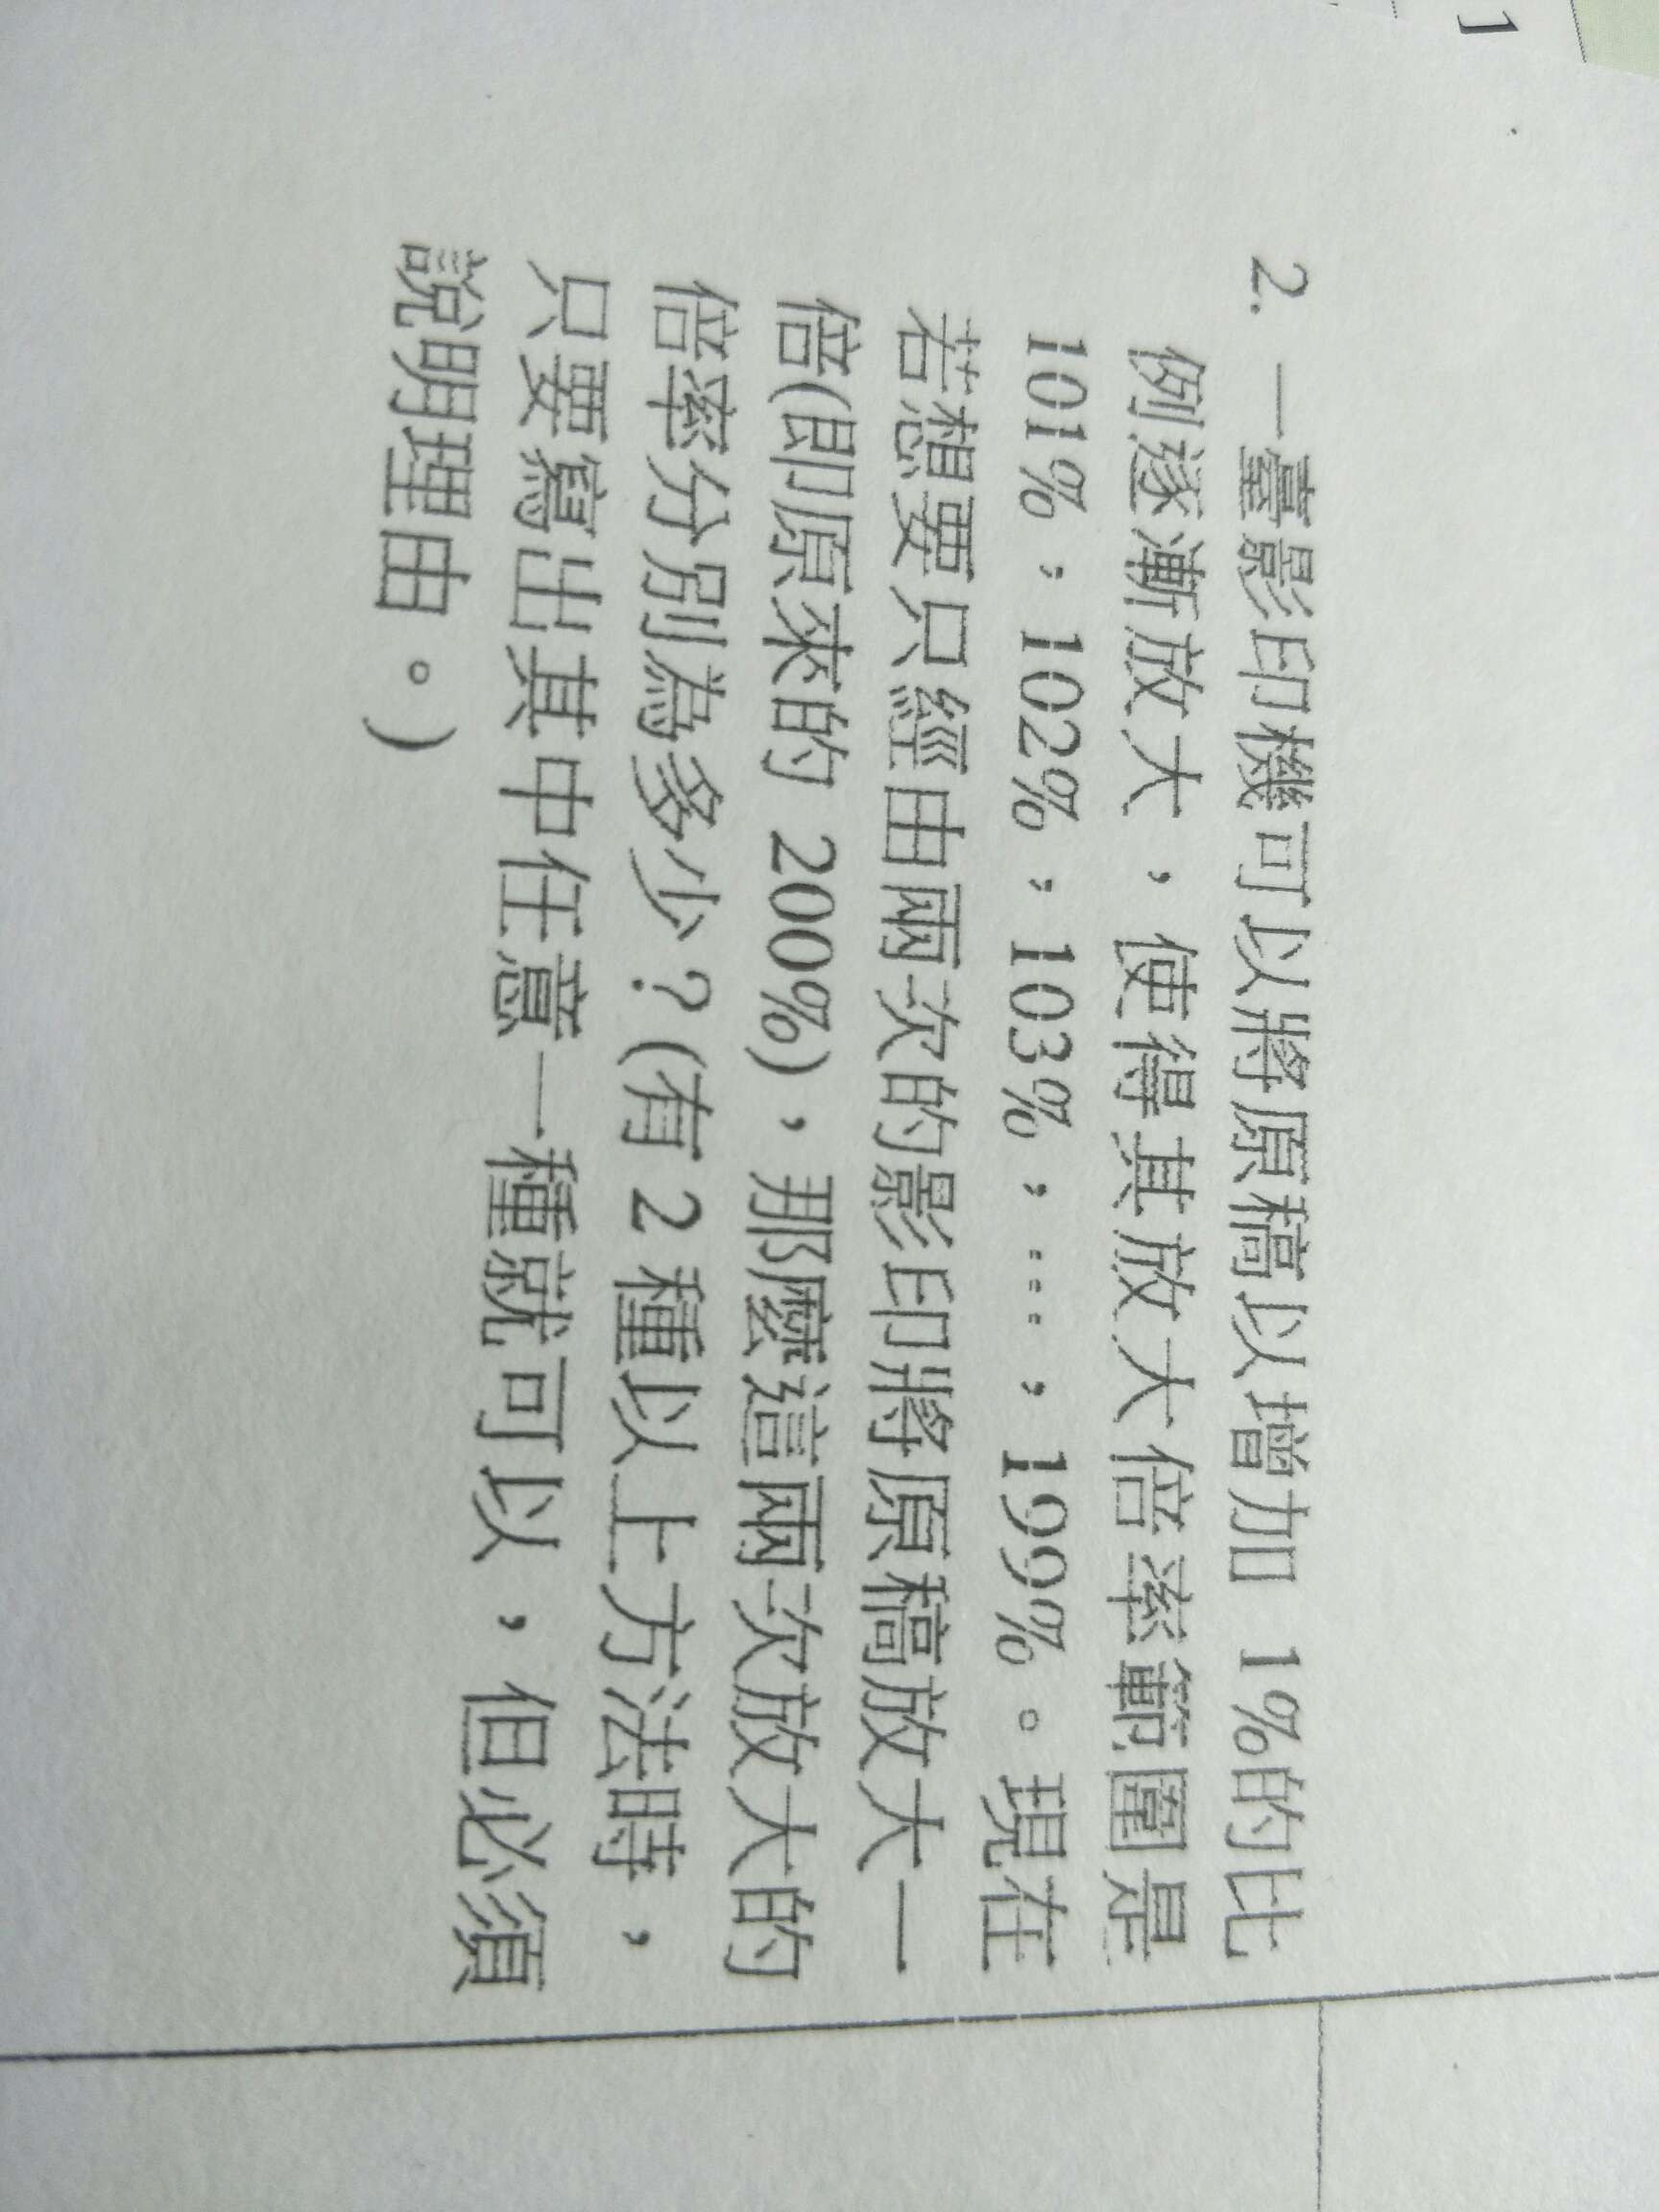 2. 一臺影印機可以將原稿以增加 1%的比
例逐漸放大，使得其放大倍率範圍是
101%，102%，103%，…，199%。現在
若想要只經由兩次的影印將原稿放大一
倍(即原來的 200%)，那麼這兩次放大的
倍率分別為多少？(有 2 種以上方法時，
只要寫出其中任意一種就可以，但必須
說明理由。)